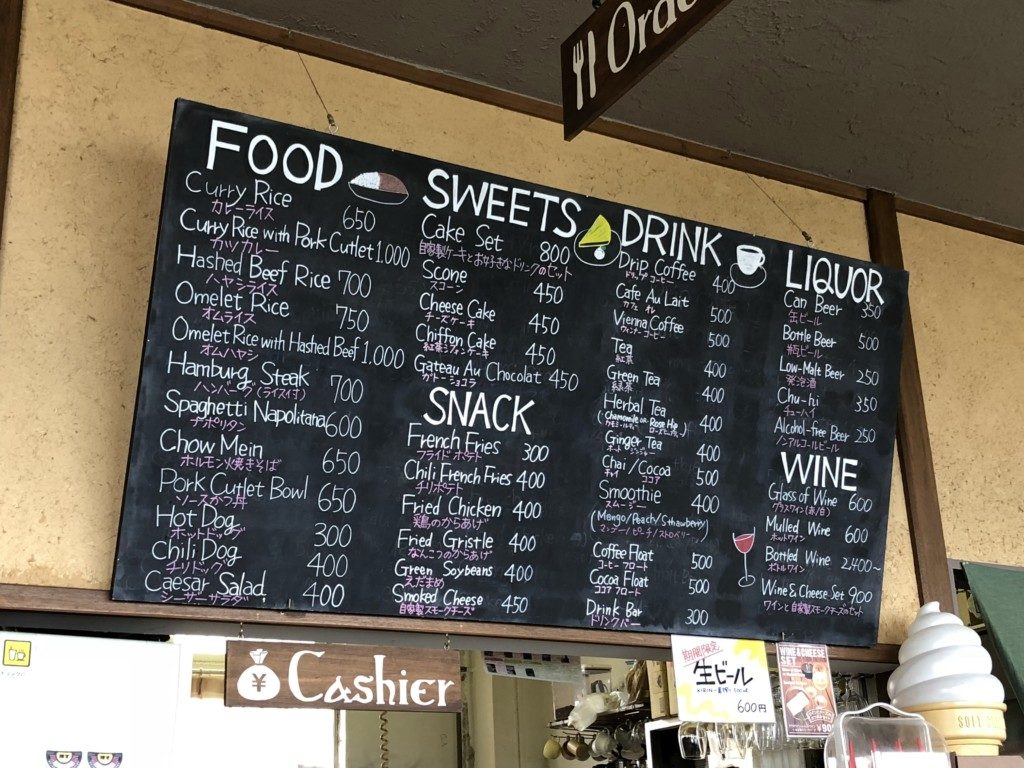 Orde
FOOD
Curry Rice 650
カレーライス
Curry Rice with Pork Cutlet 1.000
カツカレー
Hashed Beef Rice 700
ハヤシライス
Omelet Rice 750
オムライス
Omelet Rice with Hashed Beef 1.000
オムハヤシ
Hamburg Steak 700
ハンバーグ(ライス付)
Spaghetti Napolitana 600
ナポリタン
Chow Mein 650
ホルモン焼きそば
Pork Cutlet Bowl 650
ソースかつ丼
Hot Dog 300
ホットドッグ
Chili Dog 400
チリドッグ
Caesar Salad 400
シーザーサラダ
SWEETS
Cake Set 800
自家製ケーキとお好きなドリンクのセット
Scone 450
スコーン
Cheese Cake 450
チーズケーキ
Chiffon Cake 450
紅茶シフォンケーキ
Gateau Au Chocolat 450
ガトーショコラ
SNACK
French Fries 300
フライドポテト
Chili French Fries 400
チリポテト
Fried Chicken 400
鶏のからあげ
Fried Gristle 400
なんこつのからあげ
Green Soybeans 400
えだまめ
Smoked Cheese 450
自家製スモークチーズ
DRINK
Drip Coffee 400
ドリップコーヒー
Cafe Au Lait 500
カフェ オレ
Vienna Coffee 500
ウィンナーコーヒー
Tea 400
紅茶
Green Tea 400
緑茶
Herbal Tea 400
(Chamomile or Rose Hip)
Ginger Tea 400
ホット ジンジャー
Chai / Cocoa 500
チャイ ココア
Smoothie 400
スムージー
(Mango/Peach/Strawberry)
マンゴー/ピーチ/ストロベリー
Coffee Float 500
コーヒーフロート
Cocoa Float 500
ココアフロート
Drink Bar 300
ドリンクバー
LIQUOR
Can Beer 350
缶ビール
Bottle Beer 500
瓶ビール
Low-Malt Beer 250
発泡酒
Chu-hi 350
チューハイ
Alcohol-free Beer 250
ノンアルコールビール
WINE
Glass of Wine 600
グラスワイン(赤/白)
Mulled Wine 600
ホットワイン
Bottled Wine 2.400~
ボトルワイン
Wine & Cheese Set 900
ワインと自家製スモークチーズのセット
¥ Cashier
期間限定
生ビール
600円
WINE & CHEESE
SET
¥90
SOFT